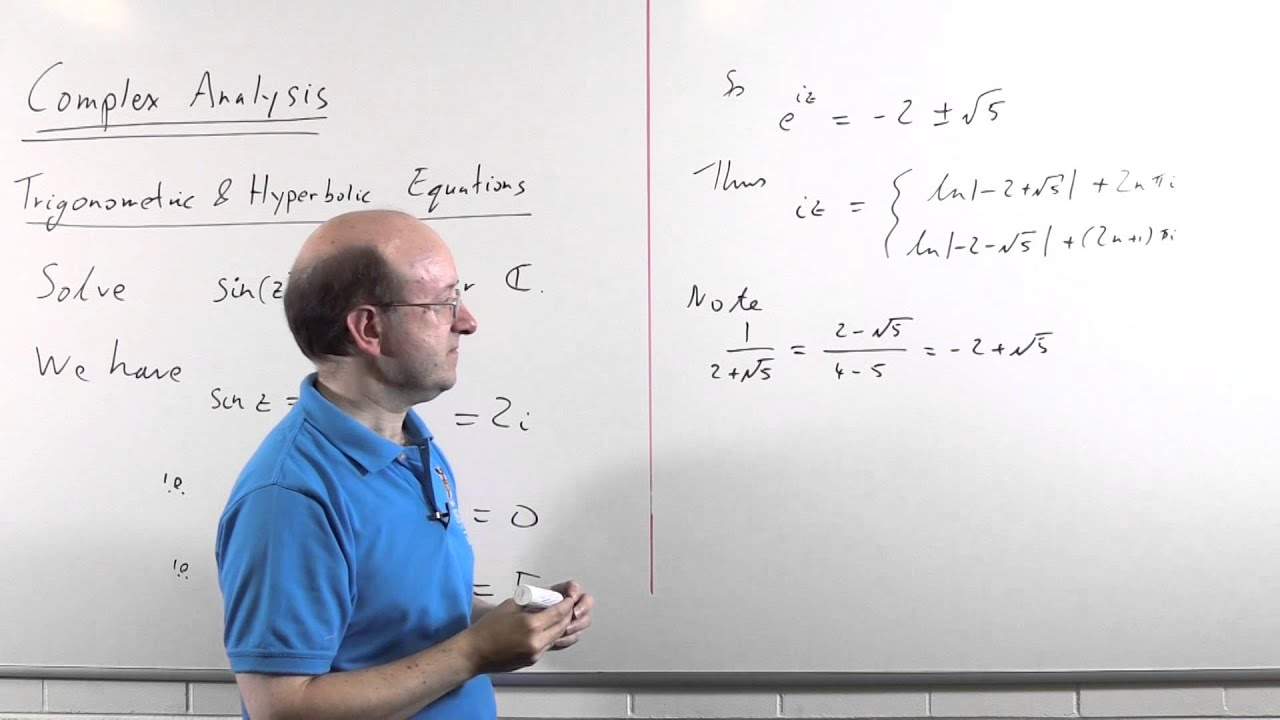 Complex Analysis
Trigonometric & Hyperbolic Equations
Solve sin(z ℂ.
We have
sin z = = 2i
i.e = 0
i.e =
So e^{iz} = -2 ± √5
Thus iz = { ln|-2+√5| + 2nπi
ln|-2-√5| + (2n+1)πi
Note
1/(2+√5) = (2-√5)/(4-5) = -2+√5